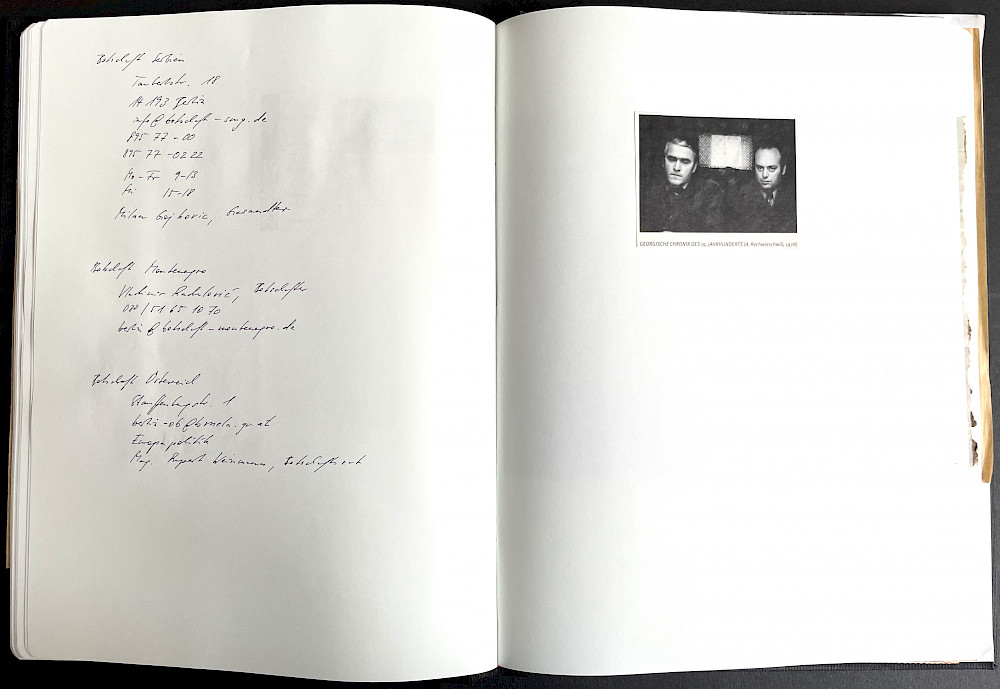 Botschaft Serbien
Taubertstr. 18
14193 Berlin
info@botschaft-smg.de
895 77 - 00
895 77 - 0222
Mo - Fr 9-13
15-18
Milan Gojkovic, Gesandter
Botschaft Montenegro
Vladimir Radulović, Botschafter
030/51 65 10 70
berlin@botschaft-montenegro.de
Botschaft Österreich
Stauffenbergstr. 1
berlin-ob@bmeia.gv.at
Europapolitik
Mag. Rupert Weinmann, Botschaftsrat
GEORGISCHE CHRONIK DES 19. JAHRHUNDERTS (A. Rechwiaschwili, 1978)